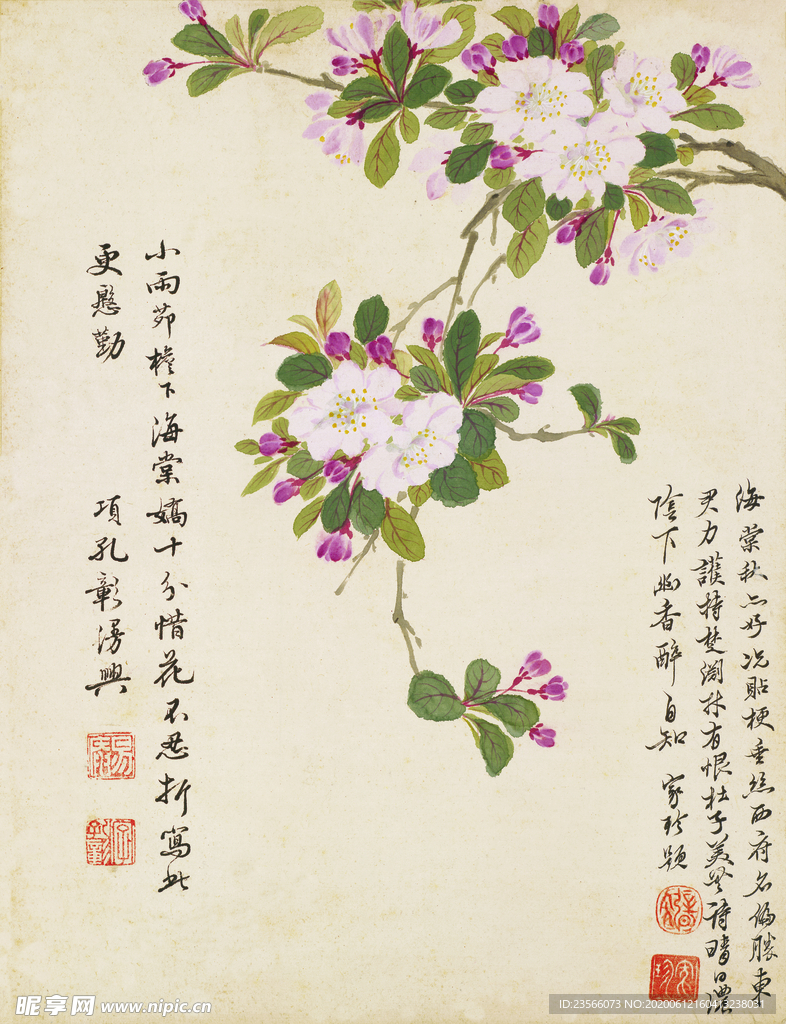 海棠秋亦好况貼梗垂絲西府名偏勝東
君力護持楚淵材有恨杜子美無詩晴日濃
陰下幽香醉自知 家珍題
小雨節檐下海棠嬌十分惜花不忍折寫此
更慇勤
項孔彰漫興
昵享网 www.nipic.cn
ID:23566073 NO:20200612160413238031